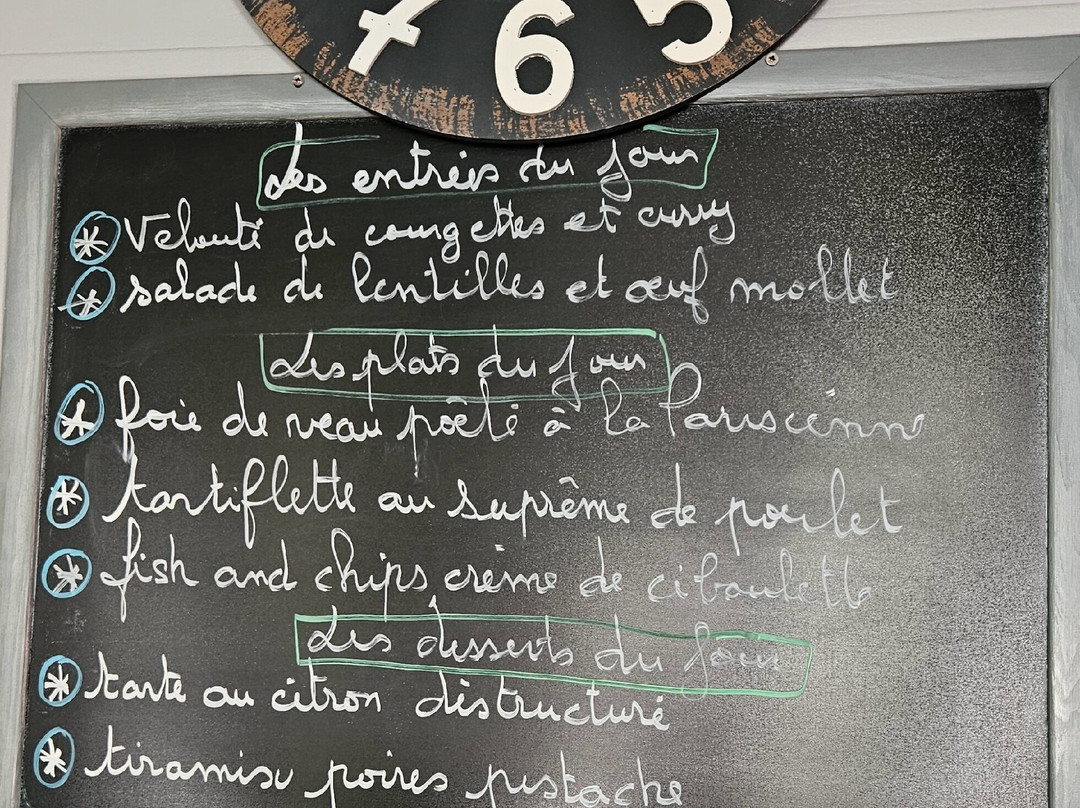 7 6 5
Les entrées du jour
Velouté de courgettes et curry
salade de lentilles et œuf mollet
Les plats du jour
foie de veau poêlé à la Parisienne
tartiflette au suprême de poulet
fish and chips, crème de ciboulette
Les desserts du jour
tarte au citron déstructuré
tiramisu poires pistache